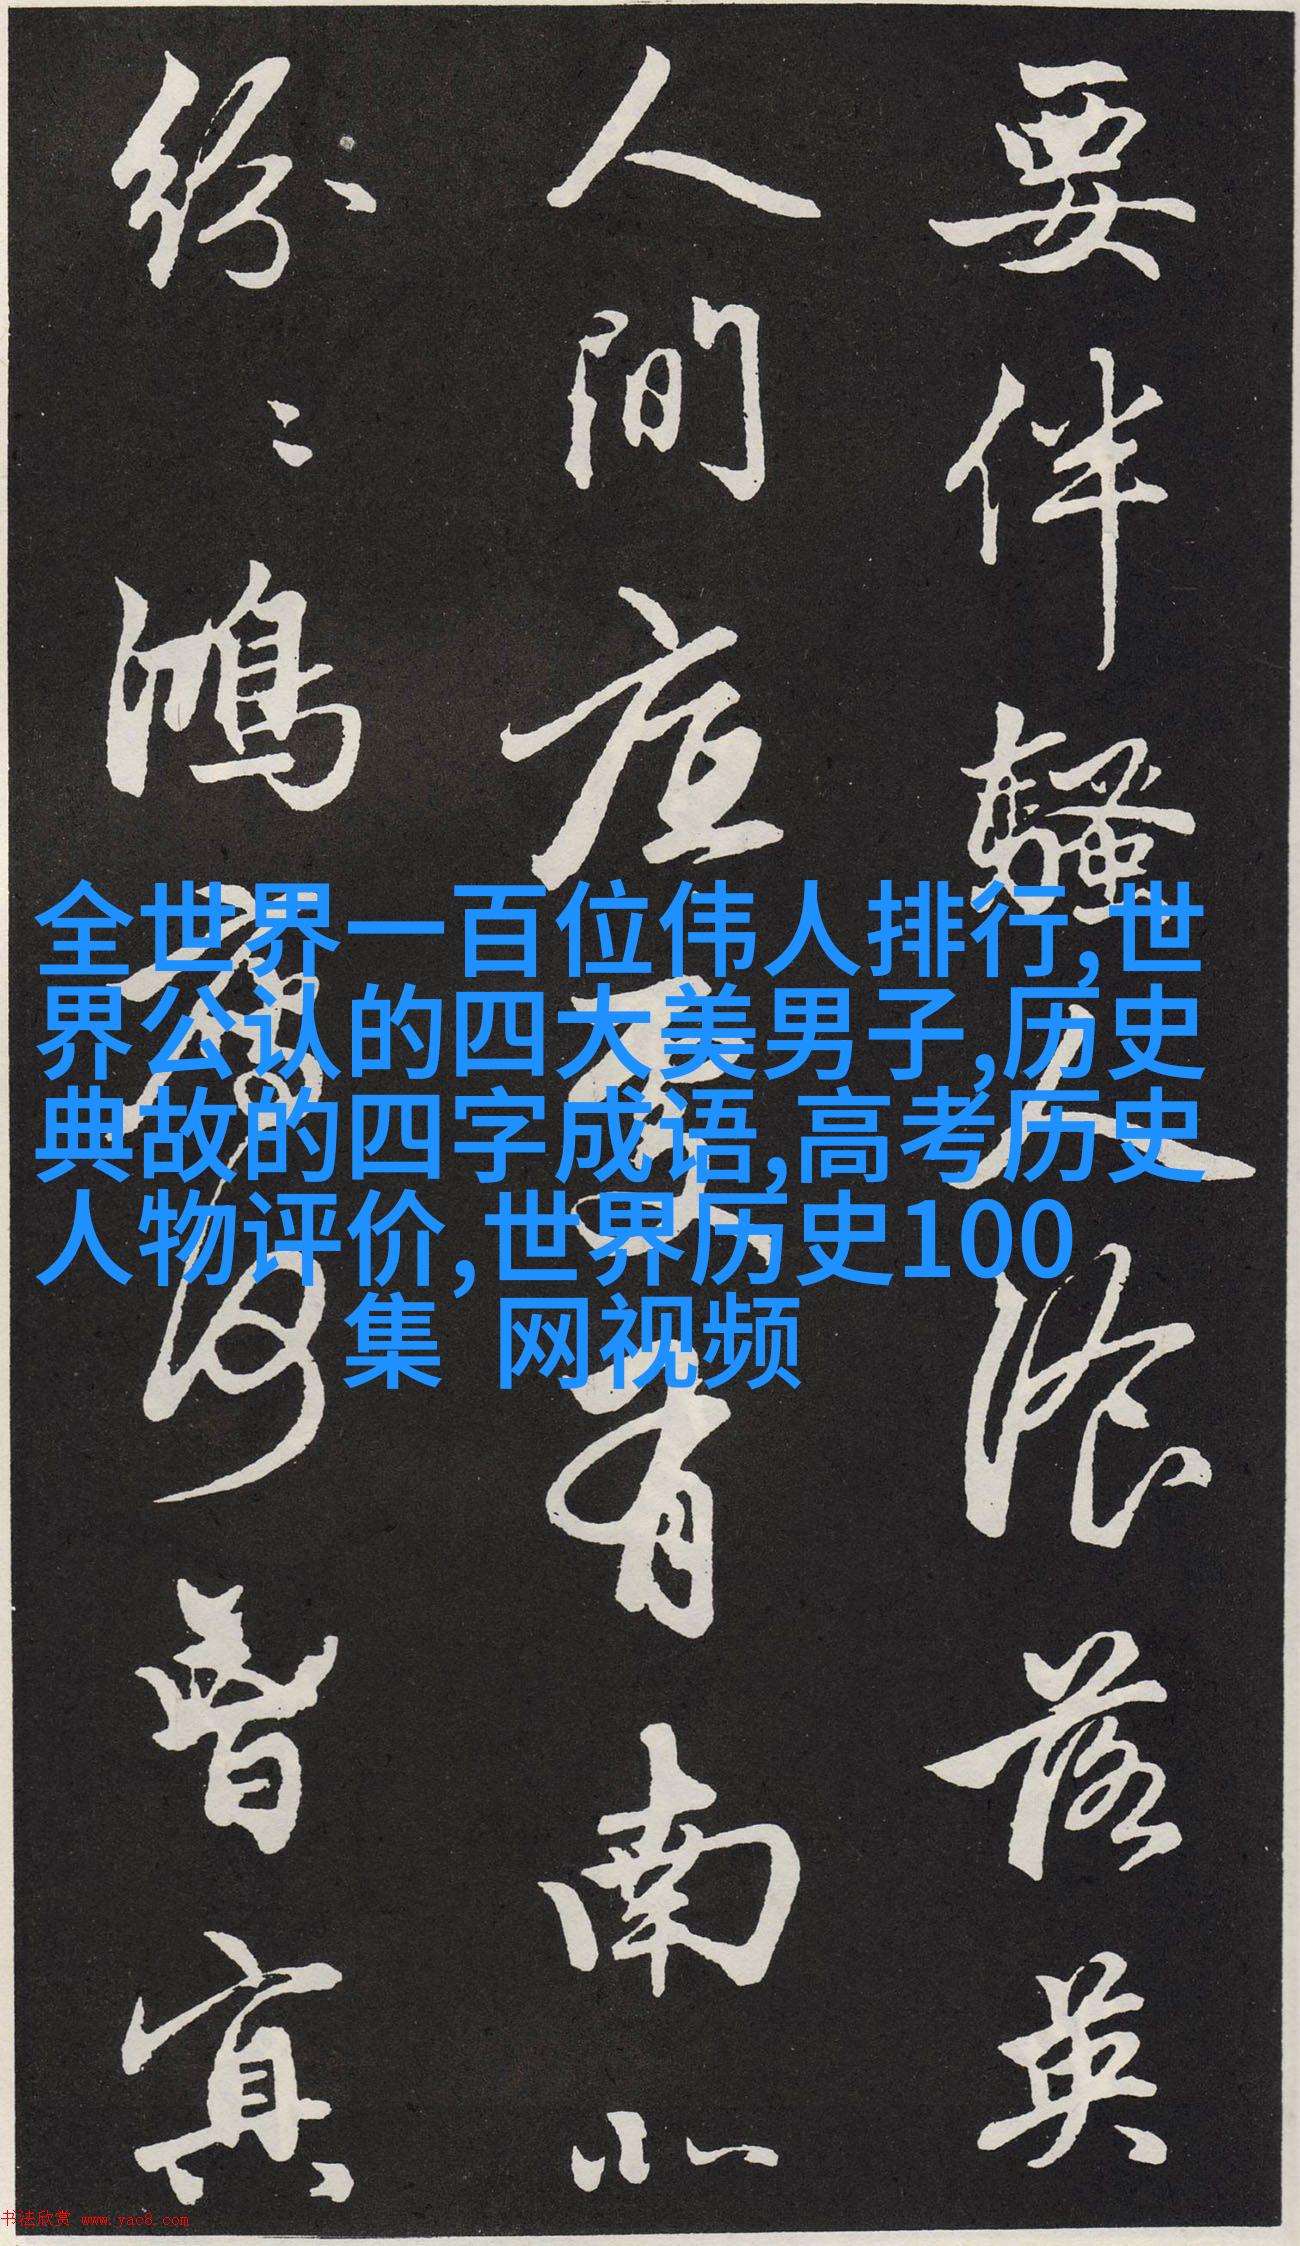 要伴騷人湌落英
人間底處有南北
紛〻鴻鴈何曾冥
全世界一百位伟人排行,世
界公认的四大美男子,历史
典故的四字成语,高考历史
人物评价,世界历史100
集 网视频
书法欣赏 www.yac8.com